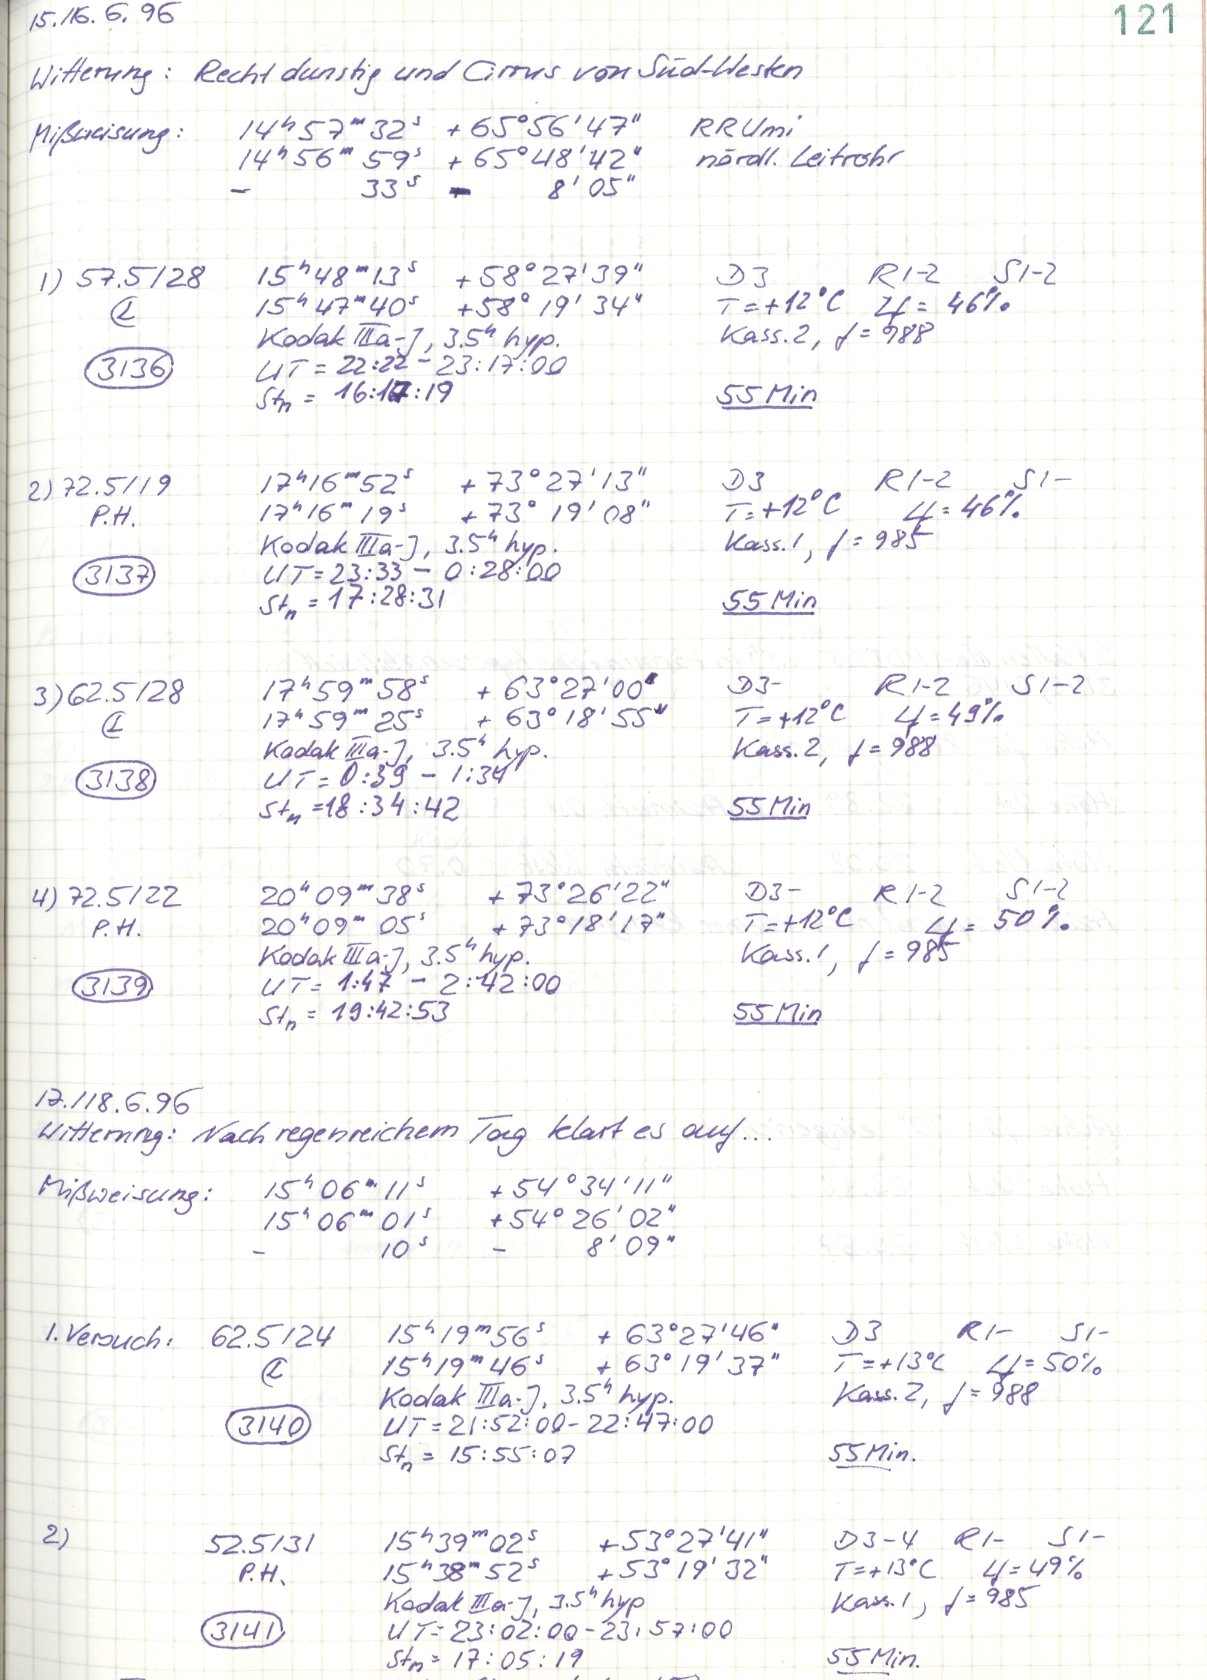 121
15./16.6.96
Witterung: Recht dunstig und Cirrus von Süd-Westen
Mißweisung: 14ʰ57ᵐ32ˢ +65°56'47" RRUmi
14ʰ56ᵐ59ˢ +65°48'42" nördl. Leitrohr
- 33ˢ - 8'05"
1) 57.5/28 15ʰ48ᵐ13ˢ +58°27'39" D3 R1-2 S1-2
15ʰ47ᵐ40ˢ +58°19'34" T=+12°C = 46%
Kodak IIIa-J, 3.5ʰ hyp. Kass.2, f=988
3136 UT=22:22-23:17:00
Stₙ = 16:17:19 55 Min
2) 72.5/19 17ʰ16ᵐ52ˢ +73°27'13" D3 R1-2 S1-
P.H. 17ʰ16ᵐ19ˢ +73°19'08" T=+12°C = 46%
Kodak IIIa-J, 3.5ʰ hyp. Kass.1, f=985
3137 UT=23:33-0:28:00
Stₙ = 17:28:31 55 Min
3) 62.5/28 17ʰ59ᵐ58ˢ +63°27'00" D3- R1-2 S1-2
17ʰ59ᵐ25ˢ +63°18'55" T=+12°C = 49%
Kodak IIIa-J, 3.5ʰ hyp. Kass.2, f=988
3138 UT=0:39-1:34
Stₙ =18:34:42 55 Min
4) 72.5/22 20ʰ09ᵐ38ˢ +73°26'22" D3- R1-2 S1-2
P.H. 20ʰ09ᵐ05ˢ +73°18'17" T=+12°C = 50%
Kodak IIIa-J, 3.5ʰ hyp. Kass.1, f=985
3139 UT=1:47-2:42:00
Stₙ = 19:42:53 55 Min
17./18.6.96
Witterung: Nach regenreichem Tag klart es auf...
Mißweisung: 15ʰ06ᵐ11ˢ +54°34'11"
15ʰ06ᵐ01ˢ +54°26'02"
- 10ˢ - 8'09"
1. Versuch: 62.5/24 15ʰ19ᵐ56ˢ +63°27'46" D3 R1- S1-
15ʰ19ᵐ46ˢ +63°19'37" T=+13°C =50%
Kodak IIIa-J, 3.5ʰ hyp. Kass.2, f=988
3140 UT=21:52:00-22:47:00
Stₙ = 15:55:07 55 Min.
2) 52.5/31 15ʰ39ᵐ02ˢ +53°27'41" D3-4 R1- S1-
P.H. 15ʰ38ᵐ52ˢ +53°19'32" T=+13°C =49%
Kodak IIIa-J, 3.5ʰ hyp Kass.1, f=985
3141 UT=23:02:00-23:57:00
Stₙ = 17:05:19 55 Min.